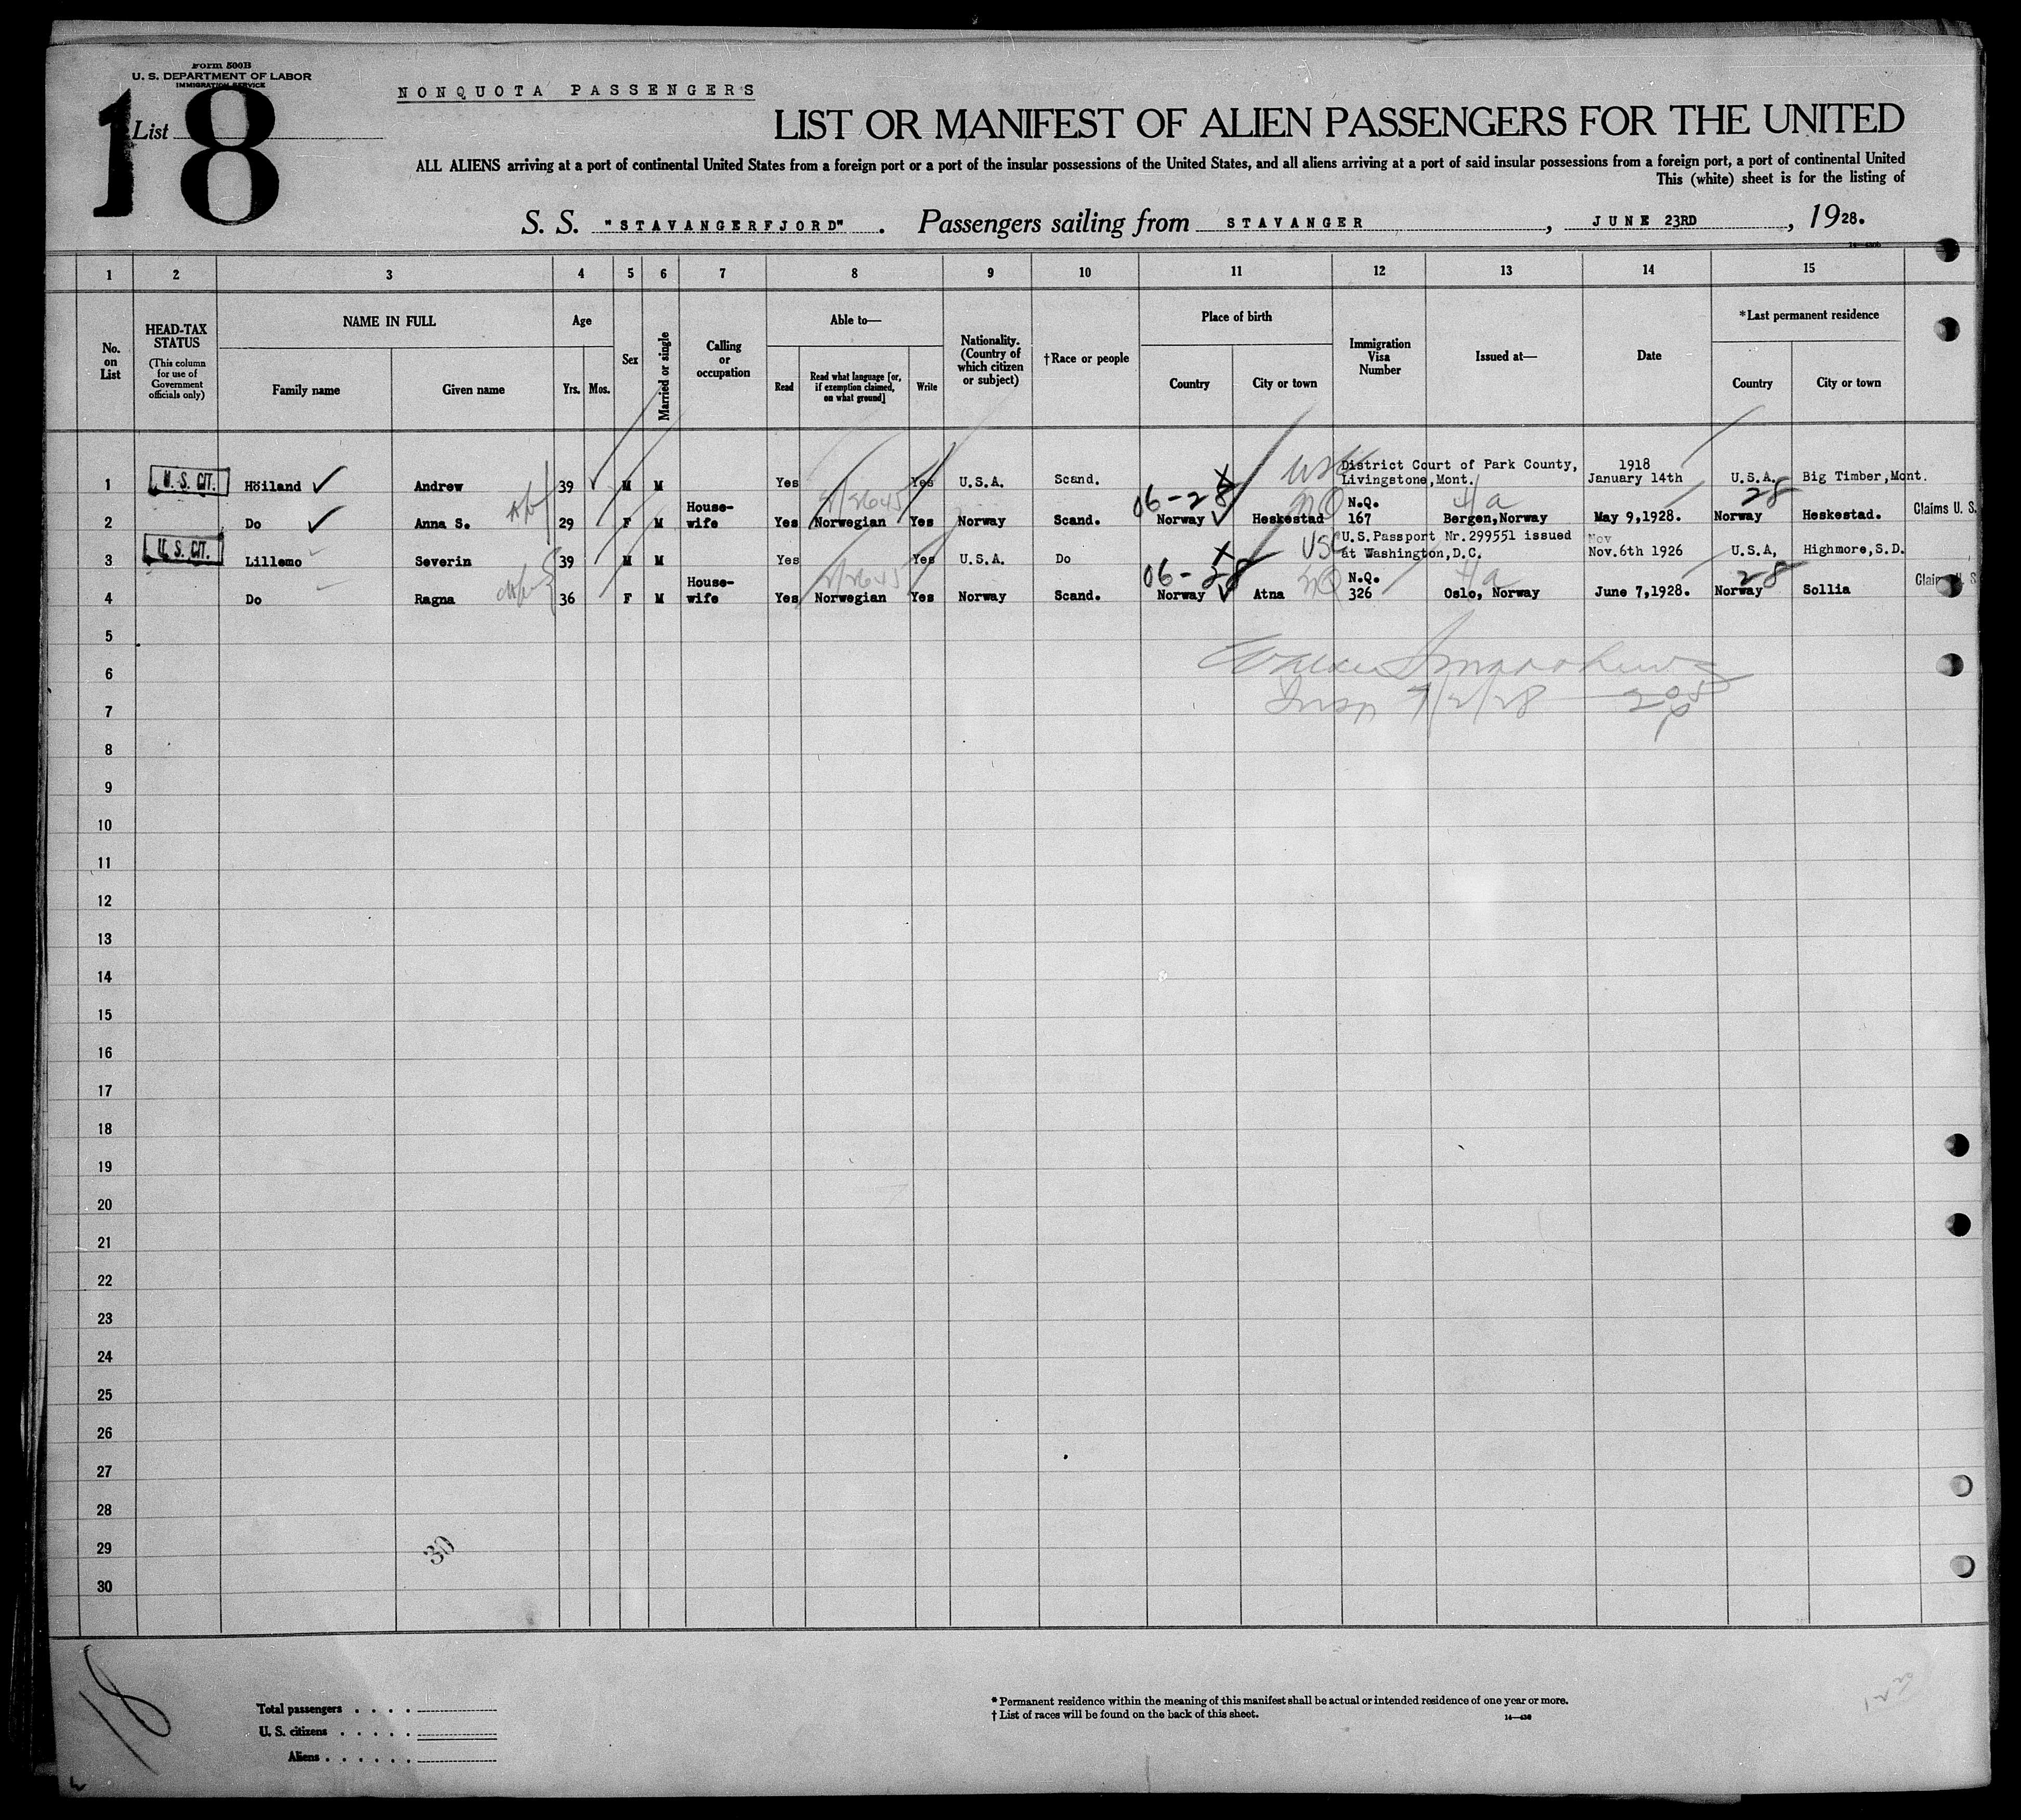 Form 500B
U. S. DEPARTMENT OF LABOR
IMMIGRATION SERVICE
List 18
NONQUOTA PASSENGERS
LIST OR MANIFEST OF ALIEN PASSENGERS FOR THE UNITED
ALL ALIENS arriving at a port of continental United States from a foreign port or a port of the insular possessions of the United States, and all aliens arriving at a port of said insular possessions from a foreign port, a port of continental United
This (white) sheet is for the listing of
S. S. "STAVANGERFJORD". Passengers sailing from STAVANGER, JUNE 23RD, 1928.
1 2 3 4 5 6 7 8 9 10 11 12 13 14 15
No. on List
HEAD-TAX STATUS (This column for use of Government officials only)
NAME IN FULL
Family name Given name
Age
Yrs. Mos.
Sex
Married or single
Calling or occupation
Able to—
Read Read what language [or, if exemption claimed, on what ground] Write
Nationality. (Country of which citizen or subject)
†Race or people
Place of birth
Country City or town
Immigration Visa Number
Issued at—
Date
*Last permanent residence
Country City or town
1 U. S. CIT. Höiland Andrew 39 M M Yes Yes U.S.A. Scand. X USC District Court of Park County, Livingstone, Mont. 1918 January 14th U.S.A. Big Timber, Mont.
2 Do Anna S. 29 F M House-wife Yes Norwegian Yes Norway Scand. 06-28 Norway Heskestad NQ N.Q. 167 Bergen, Norway May 9, 1928. 28 Norway Heskestad. Claims U. S.
3 U. S. CIT. Lillemo Severin 39 M M Yes Yes U.S.A. Do X USC U.S. Passport Nr. 299551 issued at Washington, D.C. Nov Nov. 6th 1926 U.S.A, Highmore, S.D.
4 Do Ragna 36 F M House-wife Yes Norwegian Yes Norway Scand. 06-28 Norway Atna NQ N.Q. 326 Oslo, Norway June 7, 1928. 28 Norway Sollia Claims U. S
5
6
Insp 7/2/28
7
8
9
10
11
12
13
14
15
16
17
18
19
20
21
22
23
24
25
26
27
28
29
30
30
18
Total passengers . . . .
U. S. citizens . . . . .
Aliens . . . . . .
* Permanent residence within the meaning of this manifest shall be actual or intended residence of one year or more.
† List of races will be found on the back of this sheet.